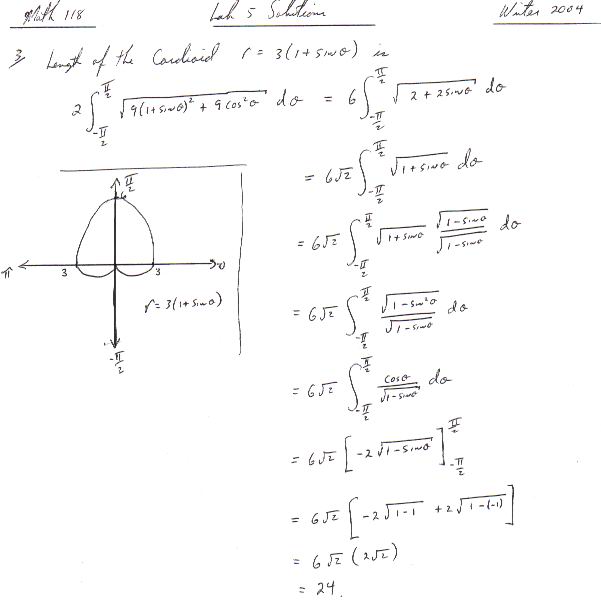 Math 118 Lab 5 Solutions Winter 2004
3. Length of the Cardioid r = 3(1 + sin θ) is
2 ∫_{-π/2}^{π/2} √(9(1+sin θ)² + 9 cos² θ) dθ = 6 ∫_{-π/2}^{π/2} √(2 + 2 sin θ) dθ
= 6√2 ∫_{-π/2}^{π/2} √(1 + sin θ) dθ
= 6√2 ∫_{-π/2}^{π/2} √(1 + sin θ) √(1 - sin θ)/√(1 - sin θ) dθ
= 6√2 ∫_{-π/2}^{π/2} √(1 - sin² θ)/√(1 - sin θ) dθ
= 6√2 ∫_{-π/2}^{π/2} cos θ/√(1 - sin θ) dθ
= 6√2 [-2√(1 - sin θ)]_{-π/2}^{π/2}
= 6√2 [-2√(1-1) + 2√(1-(-1))]
= 6√2 (2√2)
= 24.
π/2
6
π 3 3 0
r = 3(1 + sin θ)
-π/2